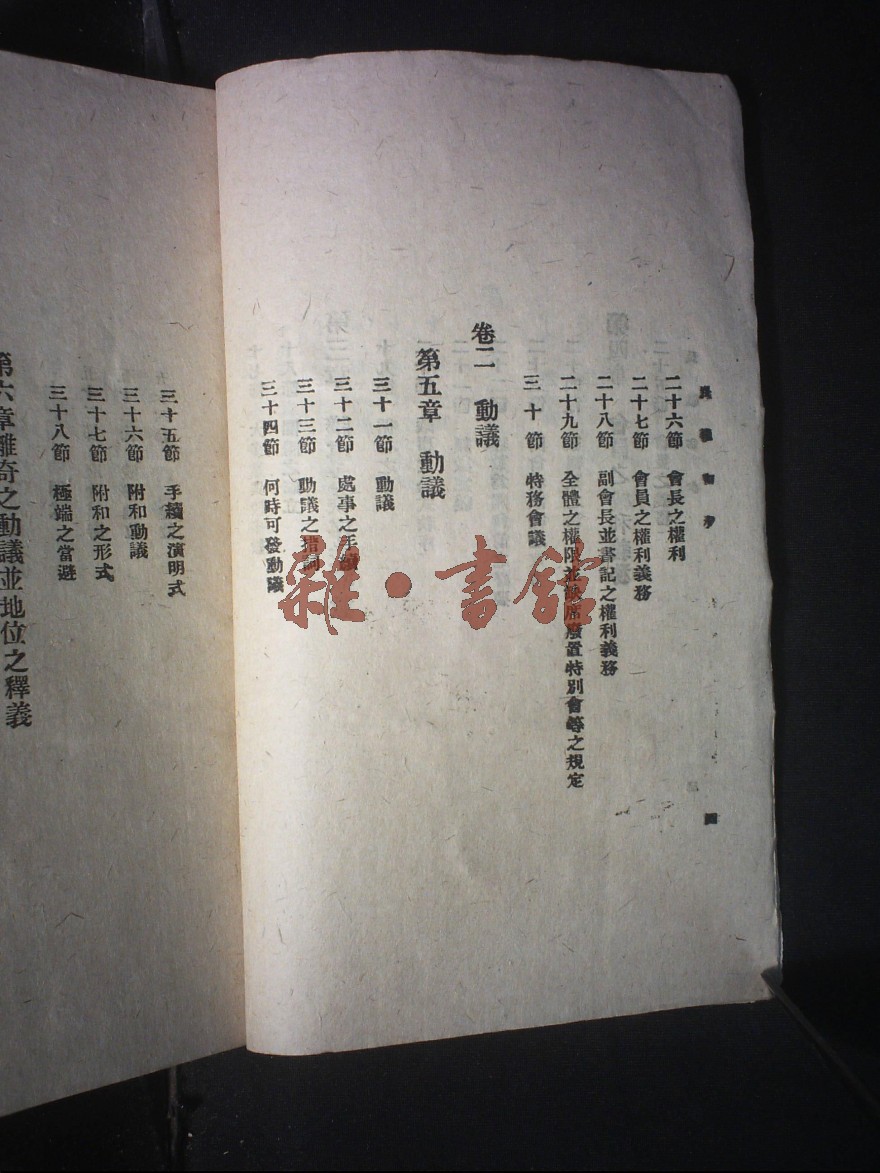 民權初步
四
二十六節 會長之權利
二十七節 會員之權利義務
二十八節 副會長並書記之權利義務
二十九節 全體之權限並缺席廢置特別會等之規定
三十節 特務會議
卷二 動議
第五章 動議
三十一節 動議
三十二節 處事之手續
三十三節 動議之措詞
三十四節 何時可發動議
三十五節 手續之演明式
三十六節 附和動議
三十七節 附和之形式
三十八節 極端之當避
第六章離奇之動議並地位之釋義
雜·書館